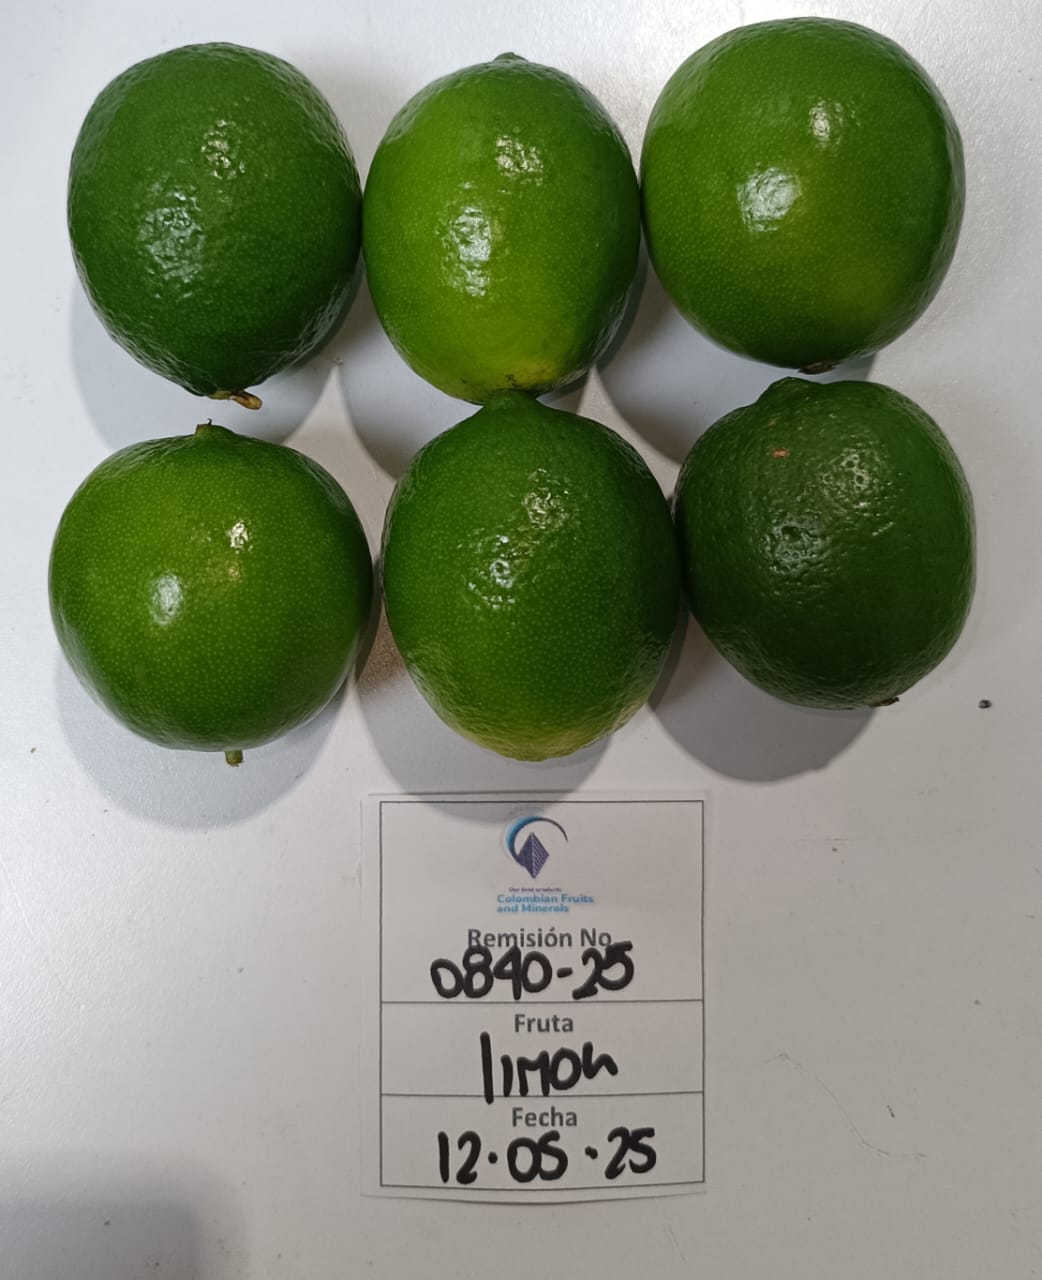 Our best products
Colombian Fruits
and Minerals
Remisión No
0840-25
Fruta
limon
Fecha
12.05.25